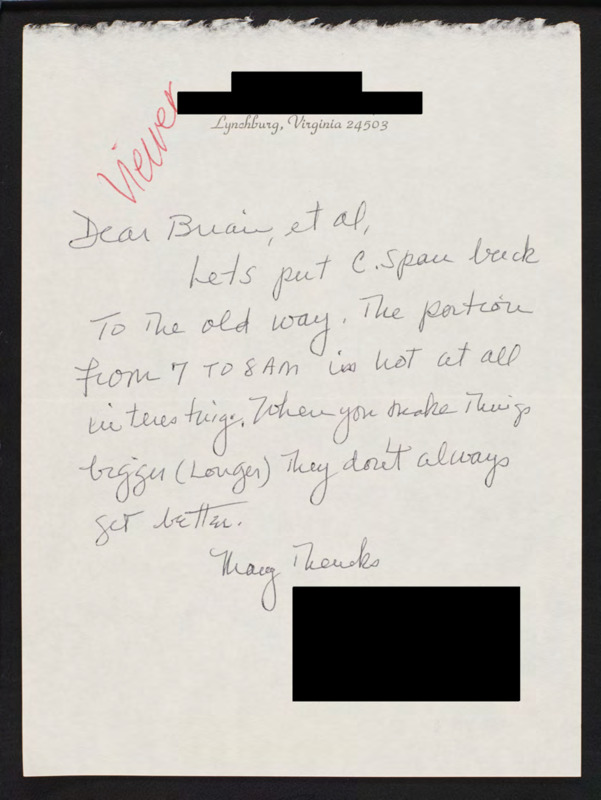 Viewer
Lynchburg, Virginia 24503
Dear Brian, et al,
Lets put C.Span back
To The old way. The portion
from 7 TO 8 AM is not at all
interesting. When you make Things
bigger (Longer) They don't always
get better.
Many Thanks